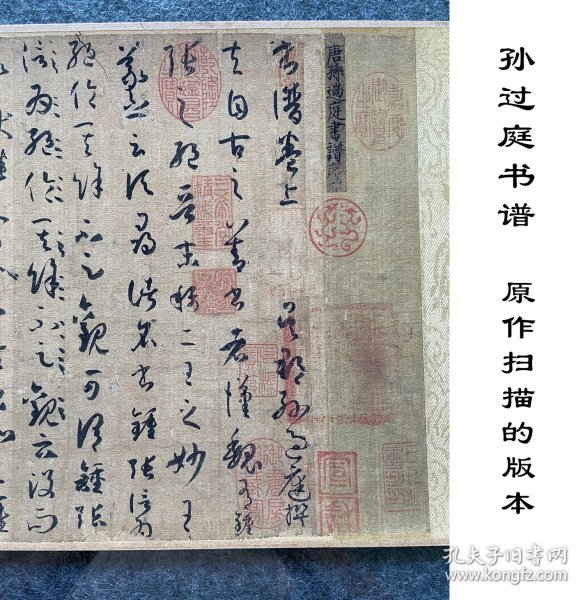 孙过庭书谱 原作扫描的版本
唐孫過庭書譜
書譜卷上 吳郡孫過庭撰
夫自古之善書者漢魏有鍾
張之絕晉末稱二王之妙王
羲之云頃尋諸名書鍾張信為
絕倫其餘不足觀可謂鍾張
信為絕倫其餘不足觀云沒而
孔夫子旧书网
www.kongfz.com